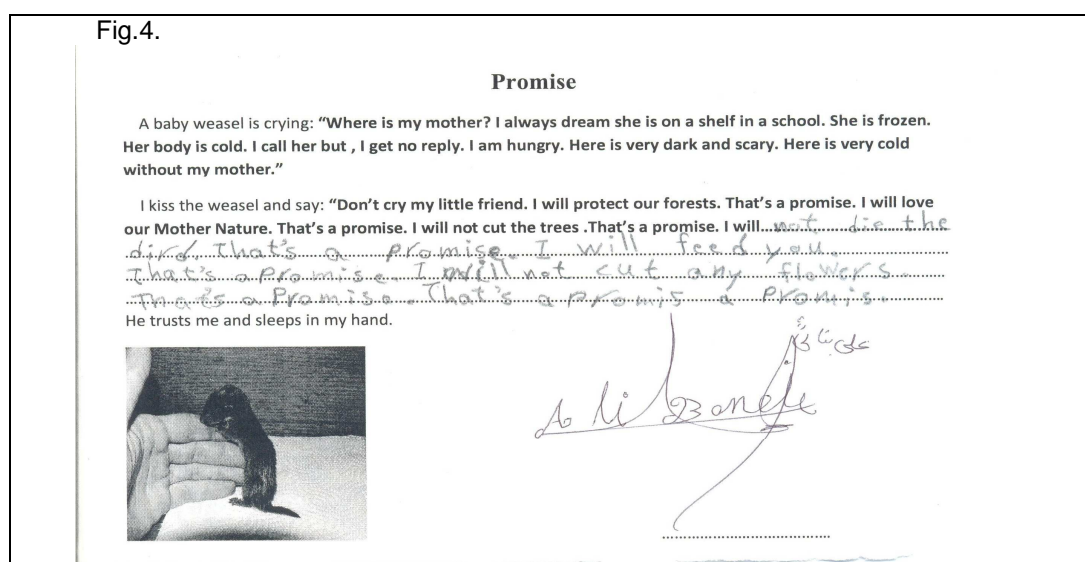 Fig.4.
Promise
A baby weasel is crying: “Where is my mother? I always dream she is on a shelf in a school. She is frozen.
Her body is cold. I call her but , I get no reply. I am hungry. Here is very dark and scary. Here is very cold
without my mother.”
I kiss the weasel and say: “Don’t cry my little friend. I will protect our forests. That’s a promise. I will love
our Mother Nature. That’s a promise. I will not cut the trees .That’s a promise. I will...not die the
dird. That's a promise. I will feed you.
That's a promise. I will not cut any flowers.
That's a Promise. That's a promis a Promis.
He trusts me and sleeps in my hand.
Ali